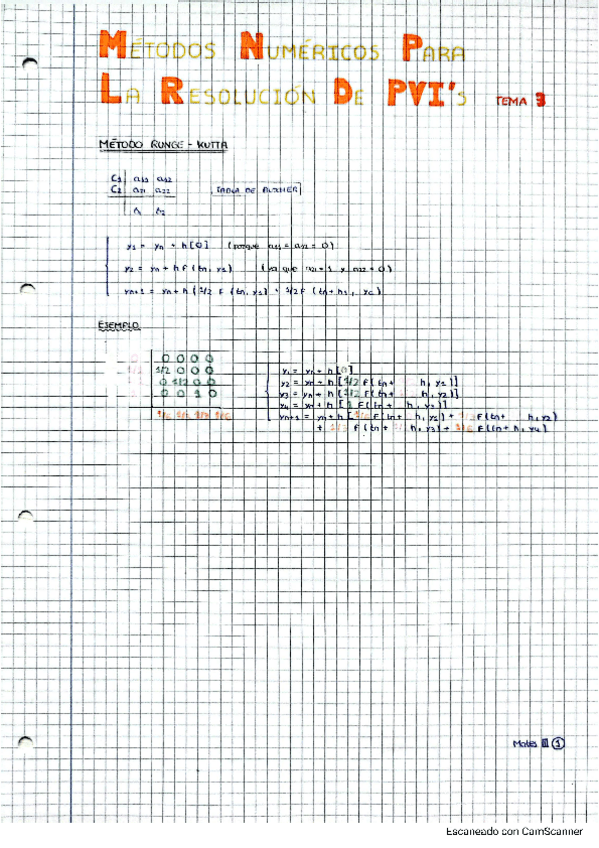 MÉTODOS NUMÉRICOS PARA
LA RESOLUCIÓN DE PVI'S TEMA 3
MÉTODO RUNGE - KUTTA
C1 a11 a12
C2 a21 a22 TABLA DE BUTCHER
b1 b2
y1 = yn + h[0] (porque a11 = a12 = 0)
y2 = yn + h F (tn, y1) (ya que a21 = 1 y a22 = 0)
yn+1 = yn + h [1/2 F (tn, y1) + 1/2 F (tn + h, y2)
EJEMPLO
0 0 0 0 0
1/2 1/2 0 0 0
1/2 0 1/2 0 0
1 0 0 1 0
1/6 1/3 1/3 1/6
y1 = yn + h [0]
y2 = yn + h [1/2 F(tn + h, y1)]
y3 = yn + h [1/2 F(tn + h, y2)]
y4 = yn + h [1 F(tn + h, y3)]
yn+1 = yn + h [1/6 F(tn + h, y1) + 1/3 F(tn + h, y2)
+ 1/3 F(tn + h, y3) + 1/6 F(tn + h, y4)]
Mates III 1
Escaneado con CamScanner